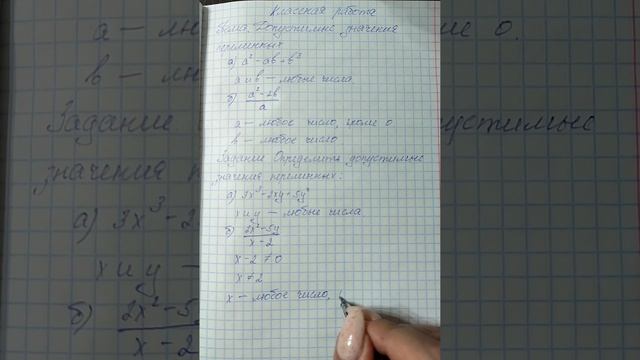 Классная работа
Тема. Допустимые значения
переменных
а) a² - ab + b²
a и b — любые числа
б) a² - 2b / a
a — любое число, кроме 0
b — любое число
Задание Определить допустимые
значения переменных:
а) 3x³ - 2xy + 5y²
x и y — любые числа
б) 2x² - 5y / x - 2
x - 2 ≠ 0
x ≠ 2
x — любое число,